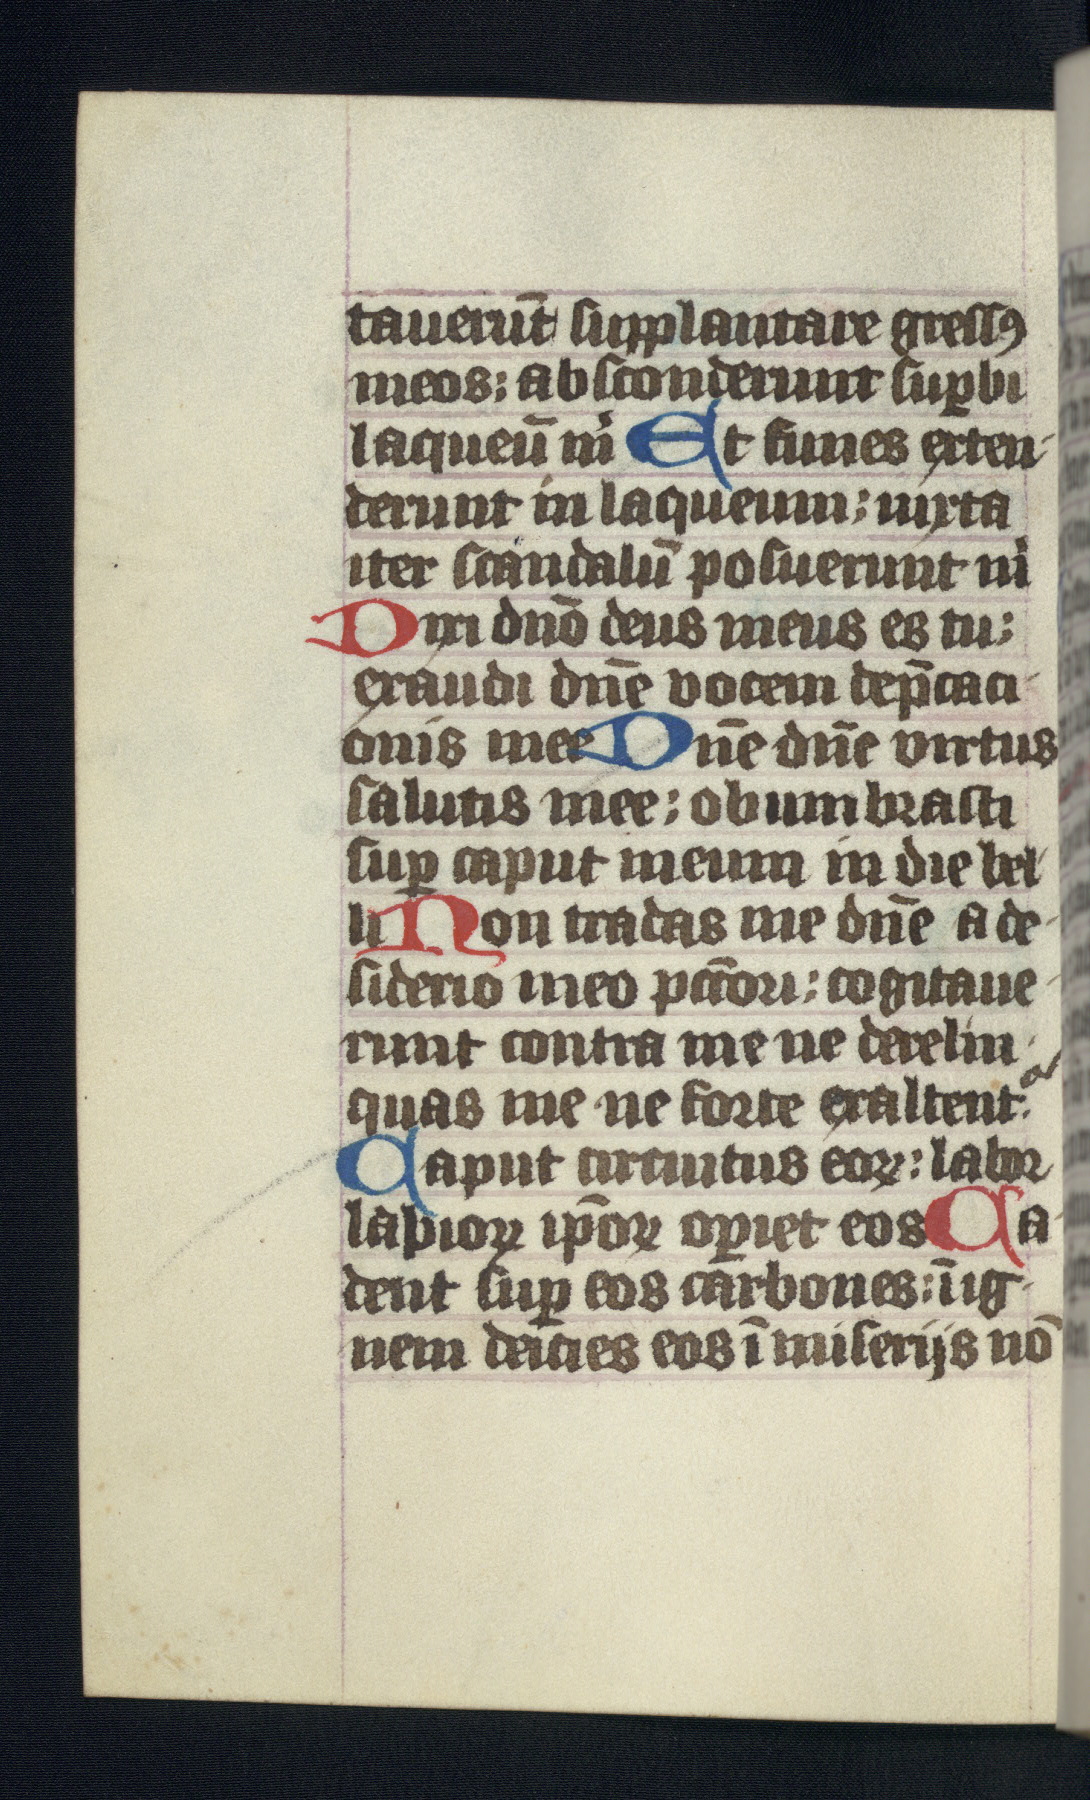 tauerūt supplantare gressꝯ
meos: absconderunt suꝑbi
laqueū m̓ Et funes exten-
derunt in laqueum: iuxta
iter scandalū posuerunt m̓
Dixi dn̄o deus meus es tu:
exaudi dn̄e vocem dep̄caci-
onis mee Dn̄e dn̄e virtus
salutis mee: obumbrasti
suꝑ caput meum in die bel-
li Non tradas me dn̄e a de-
siderio meo pctōri: cogitaue-
runt contra me ne derelin-
quas me ne forte exaltent᷑
Caput circuitus eoꝝ: labor
labioꝝ ip̄oꝝ oꝑiet eos Ca-
dent suꝑ eos carbones: ī ig-
nem deicies eos ī miserijs nō